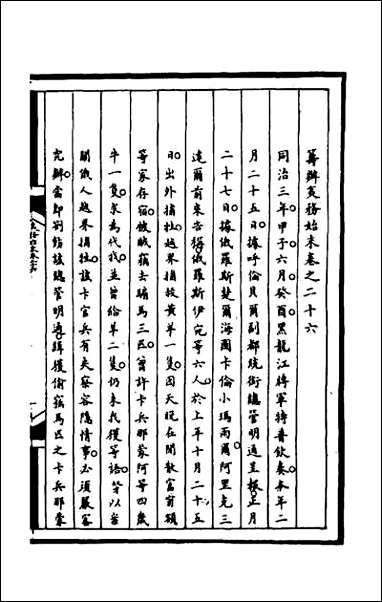 籌辦夷務始末卷之二十六
同治三年甲子六月癸酉黑龍江將軍特普欽奏本年二
月二十五日據呼倫貝爾副都統銜總管明通呈報正月
二十七日據俄羅斯楚爾海圖卡倫小瑪雨爾阿里克三
達爾前來告稱俄羅斯伊完等六人於上年十月二十五
日出外捕牲越界捕放黃羊一隻因天晚在閒散富甯額
等家存宿被賊竊去騸馬三匹曾許卡兵那蒙阿等四歲
牛一隻求為代找並曾給羊二隻仍未找獲等語等以咨
關俄人越界捕牲該卡官兵有失察容隱情事必須嚴密
究辦當即劄飭該總管明通緝獲偷竊馬匹之卡兵那蒙